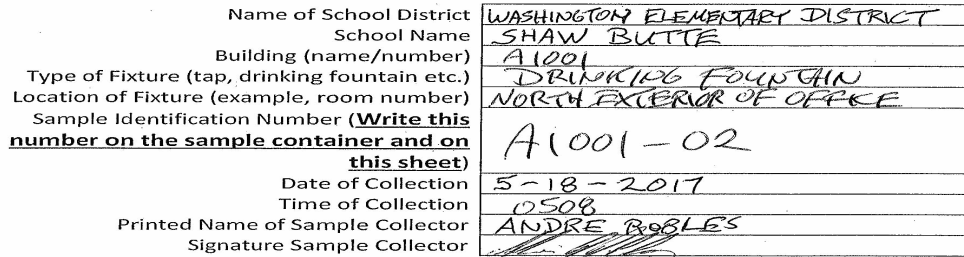 Name of School District WASHINGTON ELEMENTARY DISTRICT
School Name SHAW BUTTE
Building (name/number) A1001
Type of Fixture (tap, drinking fountain etc.) DRINKING FOUNTAIN
Location of Fixture (example, room number) NORTH EXTERIOR OF OFFICE
Sample Identification Number (Write this
number on the sample container and on A1001-02
this sheet)
Date of Collection 5-18-2017
Time of Collection 0508
Printed Name of Sample Collector ANDRE ROBLES
Signature Sample Collector